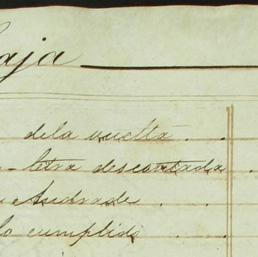 aja
dela vuelta . .
letra descontada .
Andrade . .
lo cumplido